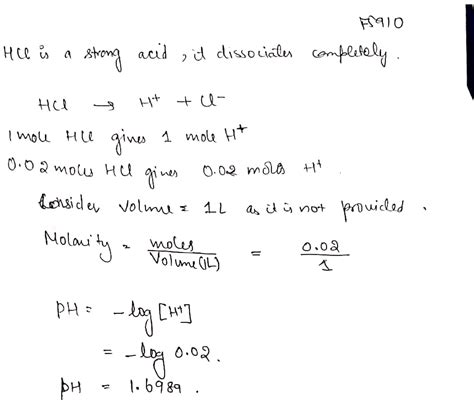 FS910
HCl is a strong acid, it dissociates completely.
HCl → H⁺ + Cl⁻
1 mole HCl gives 1 mole H⁺
0.02 moles HCl gives 0.02 moles H⁺.
Consider volume = 1L as it is not provided.
Molarity = moles / Volume(1L) = 0.02 / 1
pH = -log [H⁺]
= -log 0.02.
pH = 1.6989.